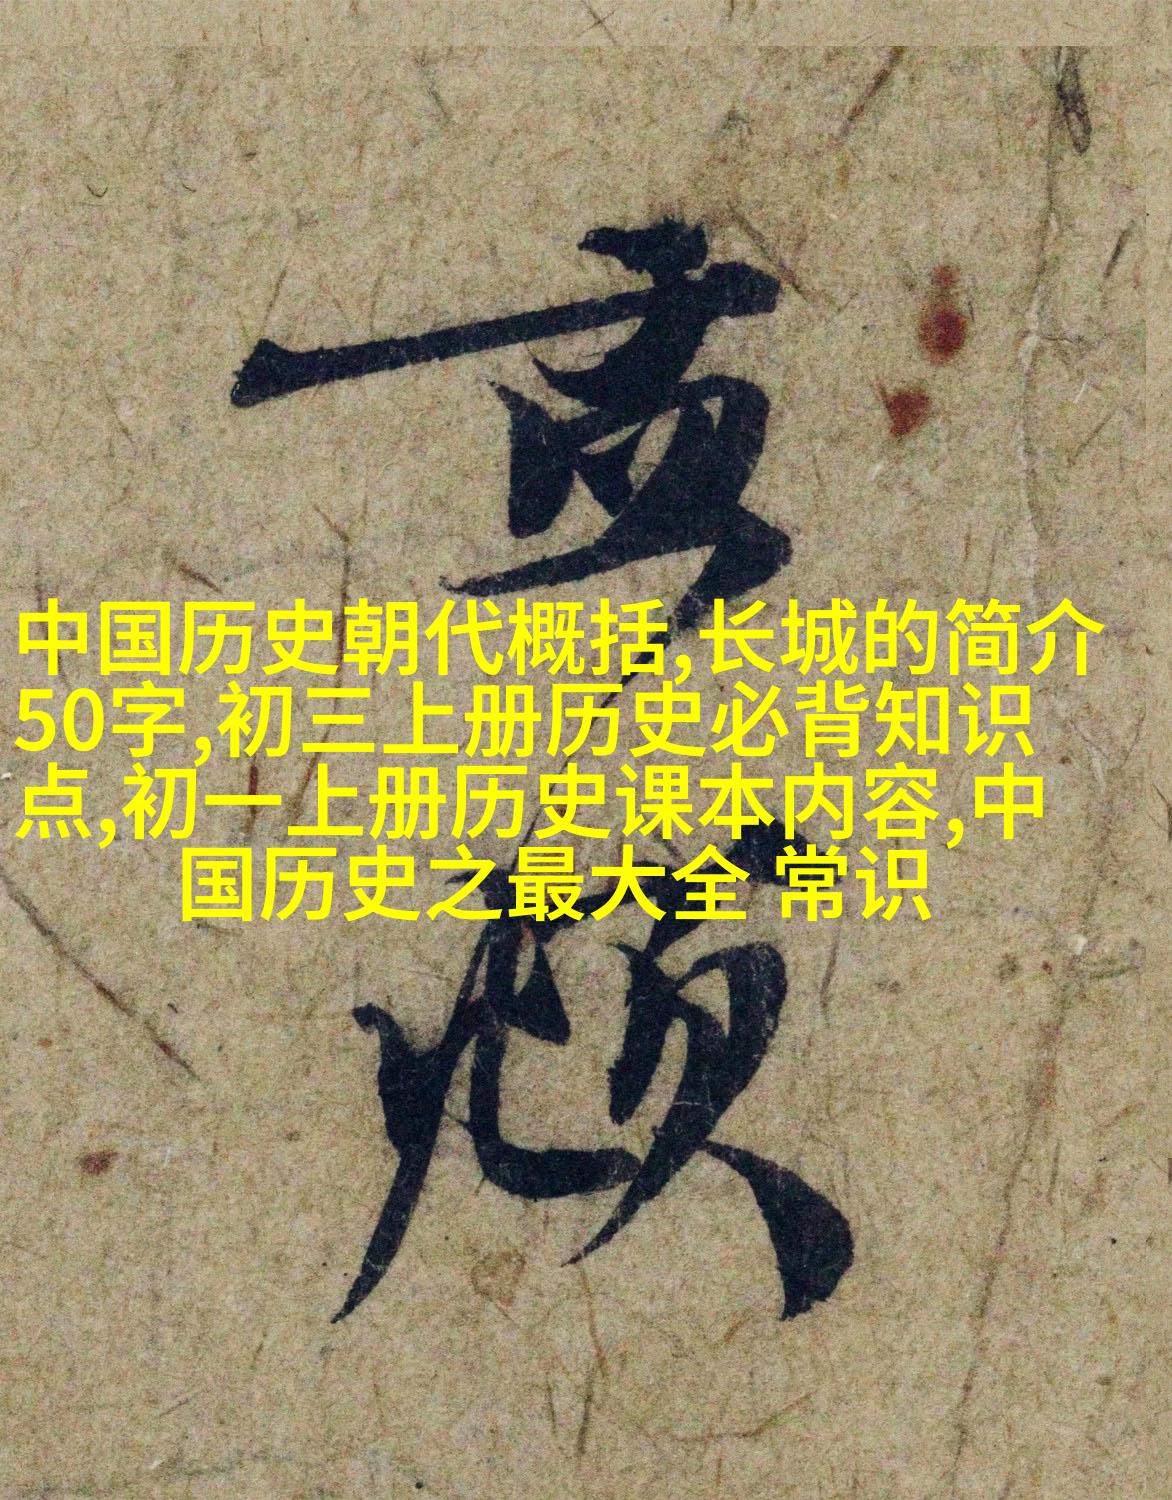 中国历史朝代概括,长城的简介
50字,初三上册历史必背知识
点,初一上册历史课本内容,中
国历史之最大全 常识